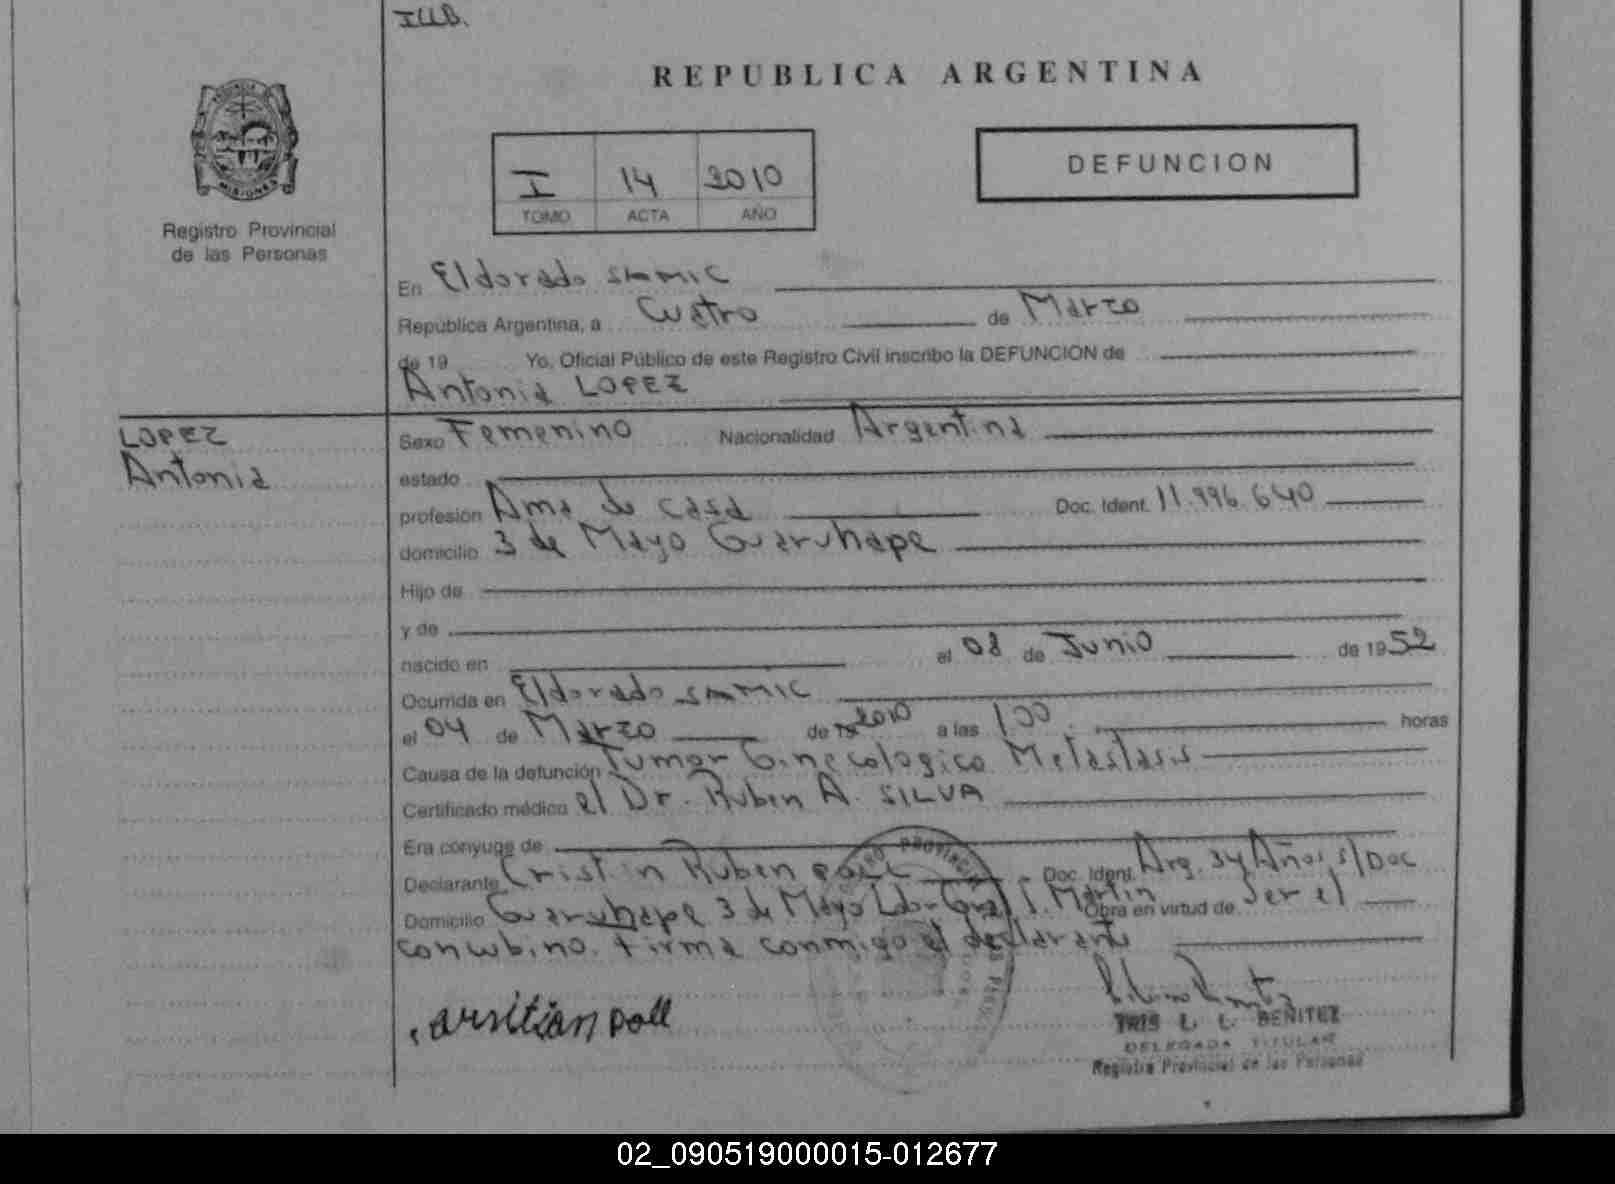 REPUBLICA ARGENTINA
MISIONES
Registro Provincial
de las Personas
I 14 2010
TOMO ACTA AÑO
DEFUNCION
En Eldorado SAMIC
República Argentina, a Cuatro de Marzo
de 19 Yo, Oficial Público de este Registro Civil inscribo la DEFUNCION de
Antonia LOPEZ
LOPEZ
Antonia
Sexo Femenino Nacionalidad Argentina
estado
profesión Ama de casa Doc. Ident. 11.996.640
domicilio 3 de Mayo Garuhape
Hijo de
y de
nacido en el 08 de Junio de 1952
Ocurrida en Eldorado SAMIC
el 04 de Marzo de 2010 a las 1,00 horas
Causa de la defunción Tumor Ginecologico Metastasis
Certificado médico el Dr. Ruben A. SILVA
Era conyuge de
Declarante Cristin Ruben Doc. Ident. Arg. 34 Años s/Doc
Domicilio Garuhape 3 de Mayo Ldor Gral S. Martin Obra en virtud de Ser el
concubino. Firma conmigo el declarante
poll
IRIS L. L. BENITEZ
DELEGADA TITULAR
Registro Provincial de las Personas
02_090519000015-012677